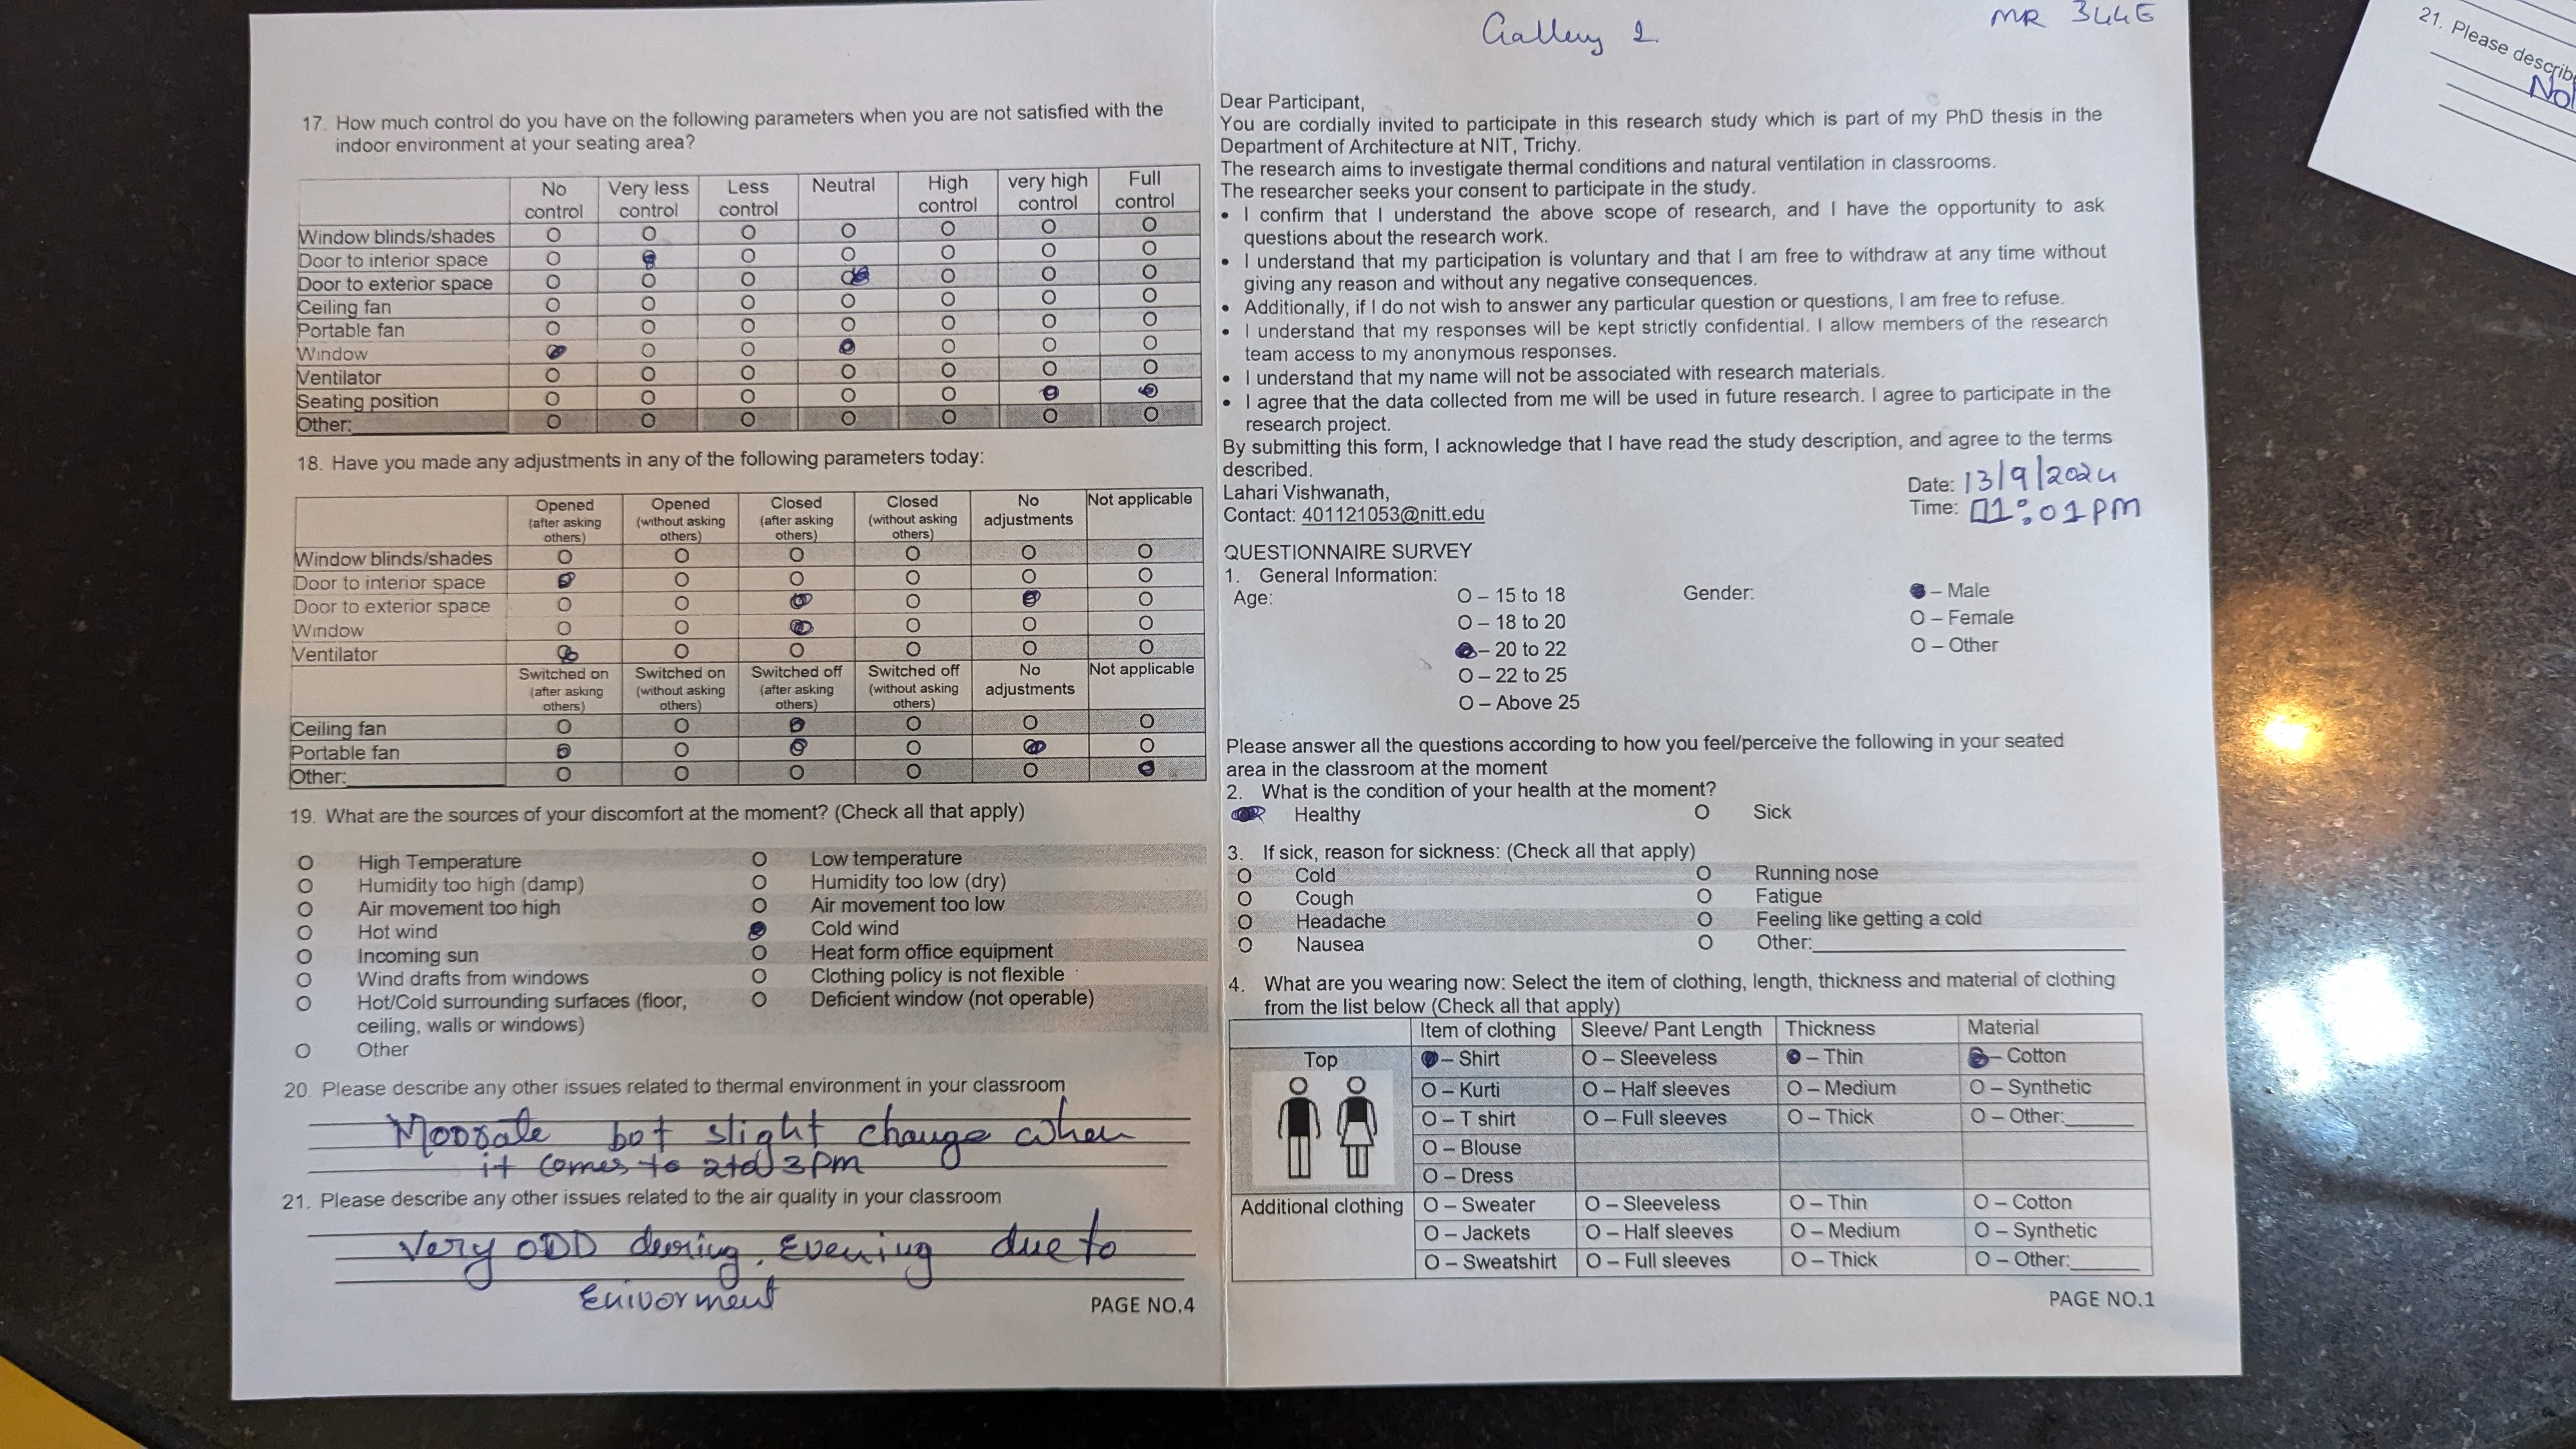 17. How much control do you have on the following parameters when you are not satisfied with the
indoor environment at your seating area?
No control Very less control Less control Neutral High control very high control Full control
Window blinds/shades O O O O O O O
Door to interior space O O O O O O
Door to exterior space O O O O O O
Ceiling fan O O O O O O O
Portable fan O O O O O O O
Window O O O O O
Ventilator O O O O O O O
Seating position O O O O O
Other: O O O O O O O
18. Have you made any adjustments in any of the following parameters today:
Opened (after asking others) Opened (without asking others) Closed (after asking others) Closed (without asking others) No adjustments Not applicable
Window blinds/shades O O O O O O
Door to interior space O O O O O
Door to exterior space O O O O
Window O O O O O
Ventilator O O O O O
Switched on (after asking others) Switched on (without asking others) Switched off (after asking others) Switched off (without asking others) No adjustments Not applicable
Ceiling fan O O O O O
Portable fan O O O
Other: O O O O O
19. What are the sources of your discomfort at the moment? (Check all that apply)
O High Temperature O Low temperature
O Humidity too high (damp) O Humidity too low (dry)
O Air movement too high O Air movement too low
O Hot wind Cold wind
O Incoming sun O Heat form office equipment
O Wind drafts from windows O Clothing policy is not flexible
O Hot/Cold surrounding surfaces (floor, O Deficient window (not operable)
ceiling, walls or windows)
O Other
20. Please describe any other issues related to thermal environment in your classroom
bot slight change when
it comes to 2to 3pm
21. Please describe any other issues related to the air quality in your classroom
Very ODD during Evening due to
Enivorment
PAGE NO.4
Gallery 2
MR 344E
Dear Participant,
You are cordially invited to participate in this research study which is part of my PhD thesis in the
Department of Architecture at NIT, Trichy.
The research aims to investigate thermal conditions and natural ventilation in classrooms.
The researcher seeks your consent to participate in the study.
• I confirm that I understand the above scope of research, and I have the opportunity to ask
questions about the research work.
• I understand that my participation is voluntary and that I am free to withdraw at any time without
giving any reason and without any negative consequences.
• Additionally, if I do not wish to answer any particular question or questions, I am free to refuse.
• I understand that my responses will be kept strictly confidential. I allow members of the research
team access to my anonymous responses.
• I understand that my name will not be associated with research materials.
• I agree that the data collected from me will be used in future research. I agree to participate in the
research project.
By submitting this form, I acknowledge that I have read the study description, and agree to the terms
described.
Date: 13/9/2024
Lahari Vishwanath,
Time: 01:01PM
Contact: 401121053@nitt.edu
QUESTIONNAIRE SURVEY
1. General Information:
Age: O – 15 to 18 Gender: – Male
O – 18 to 20 O – Female
– 20 to 22 O – Other
O – 22 to 25
O – Above 25
Please answer all the questions according to how you feel/perceive the following in your seated
area in the classroom at the moment
2. What is the condition of your health at the moment?
Healthy O Sick
3. If sick, reason for sickness: (Check all that apply)
O Cold O Running nose
O Cough O Fatigue
O Headache O Feeling like getting a cold
O Nausea O Other:
4. What are you wearing now: Select the item of clothing, length, thickness and material of clothing
from the list below (Check all that apply)
Item of clothing Sleeve/ Pant Length Thickness Material
Top – Shirt O – Sleeveless – Thin – Cotton
O – Kurti O – Half sleeves O – Medium O – Synthetic
O – T shirt O – Full sleeves O – Thick O – Other:
O – Blouse
O – Dress
Additional clothing O – Sweater O – Sleeveless O – Thin O – Cotton
O – Jackets O – Half sleeves O – Medium O – Synthetic
O – Sweatshirt O – Full sleeves O – Thick O – Other:
PAGE NO.1
21. Please describ